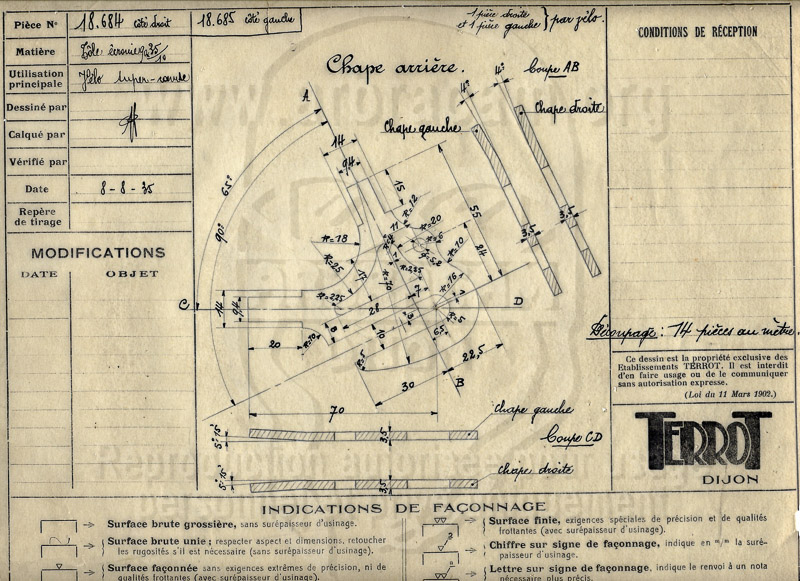 Pièce N° 18.684 côté droit 18.685 côté gauche
1 pièce droite
et 1 pièce gauche } par vélo.
Matière Tôle écrouie 35/10
Utilisation
principale Vélo super-route
Dessiné par
Calqué par
Vérifié par
Date 8-8-35
Repère
de tirage
MODIFICATIONS
DATE OBJET
CONDITIONS DE RÉCEPTION
Chape arrière.
Coupe AB
Chape droite
Chape gauche
4°
4°
A
14
9,4
15
65°
90°
R=12
R=20
11
R=6
R=18
R=10
55
24
R=25
17
R=225
R=70
R=16
R=225
C
14
9,4
28
D
20
R=10
8
10
R=5
6,5
22,5
30
B
70
3,5
3,5
Chape gauche
Coupe CD
Chape droite
5°15'
3,5
5°15'
3,5
Découpage: 14 pièces au mètre.
Ce dessin est la propriété exclusive des
Etablissements TERROT. Il est interdit
d'en faire usage ou de le communiquer
sans autorisation expresse.
(Loi du 11 Mars 1902.)
TERROT
DIJON
INDICATIONS DE FAÇONNAGE
Surface brute grossière, sans surépaisseur d'usinage.
Surface brute unie; respecter aspect et dimensions, retoucher
les rugosités s'il est nécessaire (sans surépaisseur d'usinage).
Surface façonnée sans exigences extrêmes de précision, ni de
qualités frottantes (avec surépaisseur d'usinage).
Surface finie, exigences spéciales de précision et de qualités
frottantes (avec surépaisseur d'usinage).
Chiffre sur signe de façonnage, indique en m/m la surépaisseur
d'usinage.
Lettre sur signe de façonnage, indique le renvoi à un nota
nécessaire plus précis.